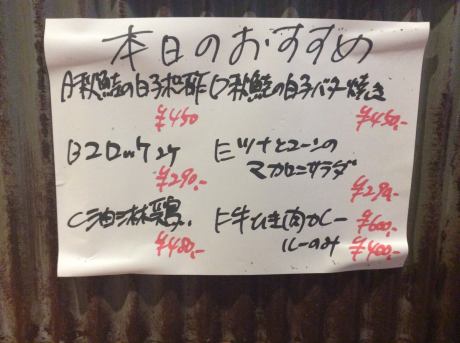 本日のおすすめ
A秋鮭の白子ポン酢
¥450
D秋鮭の白子バター焼き
¥450.-
Bコロッケ2ケ
¥290.-
Eツナとコーンの
マカロニサラダ
¥290.-
C油淋鶏
¥480.-
F牛ひき肉カレー
¥600.-
ルーのみ
¥400.-